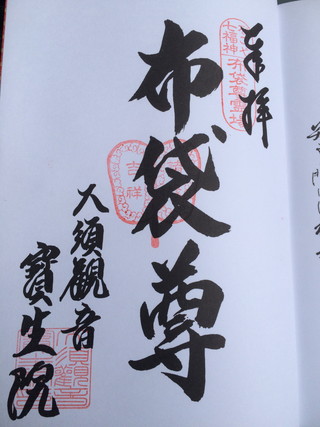 奉拝
七福神
布袋尊霊場
布袋尊
吉祥
大須観音
寶生院